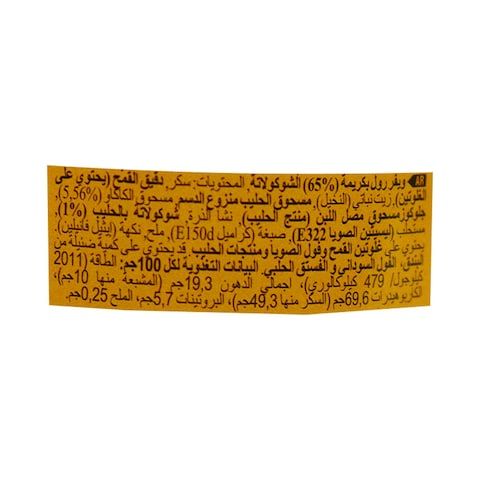 AR ويفر رول بكريمة (65%) الشوكولاتة, المحتويات: سكر, دقيق القمح (يحتوي على
الغلوتين), زيت نباتي (النخيل), مسحوق الحليب منزوع الدسم, مسحوق الكاكاو (5,56%),
جلوكوز, مسحوق مصل اللبن (منتج الحليب), نشا الذرة, شوكولاتة بالحليب (1%),
مستحلب (ليسيتين الصويا E322), صبغة (كراميل E150d), ملح, نكهة (إيثيل فانيلين),
يحتوي على غلوتين القمح وفول الصويا ومنتجات الحليب. قد يحتوي على كمية ضئيلة من
البندق, الفول السوداني و الفستق الحلبي. البيانات التغذوية لكل 100جم: الطاقة (2011
كيلوجول/ 479 كيلوكالوري), اجمالي الدهون 19,3جم (المشبعة منها 10جم),
الكاربوهيدرات 69,6جم (السكر منها 49,3جم), البروتينات 5,7جم, الملح 0,25جم.